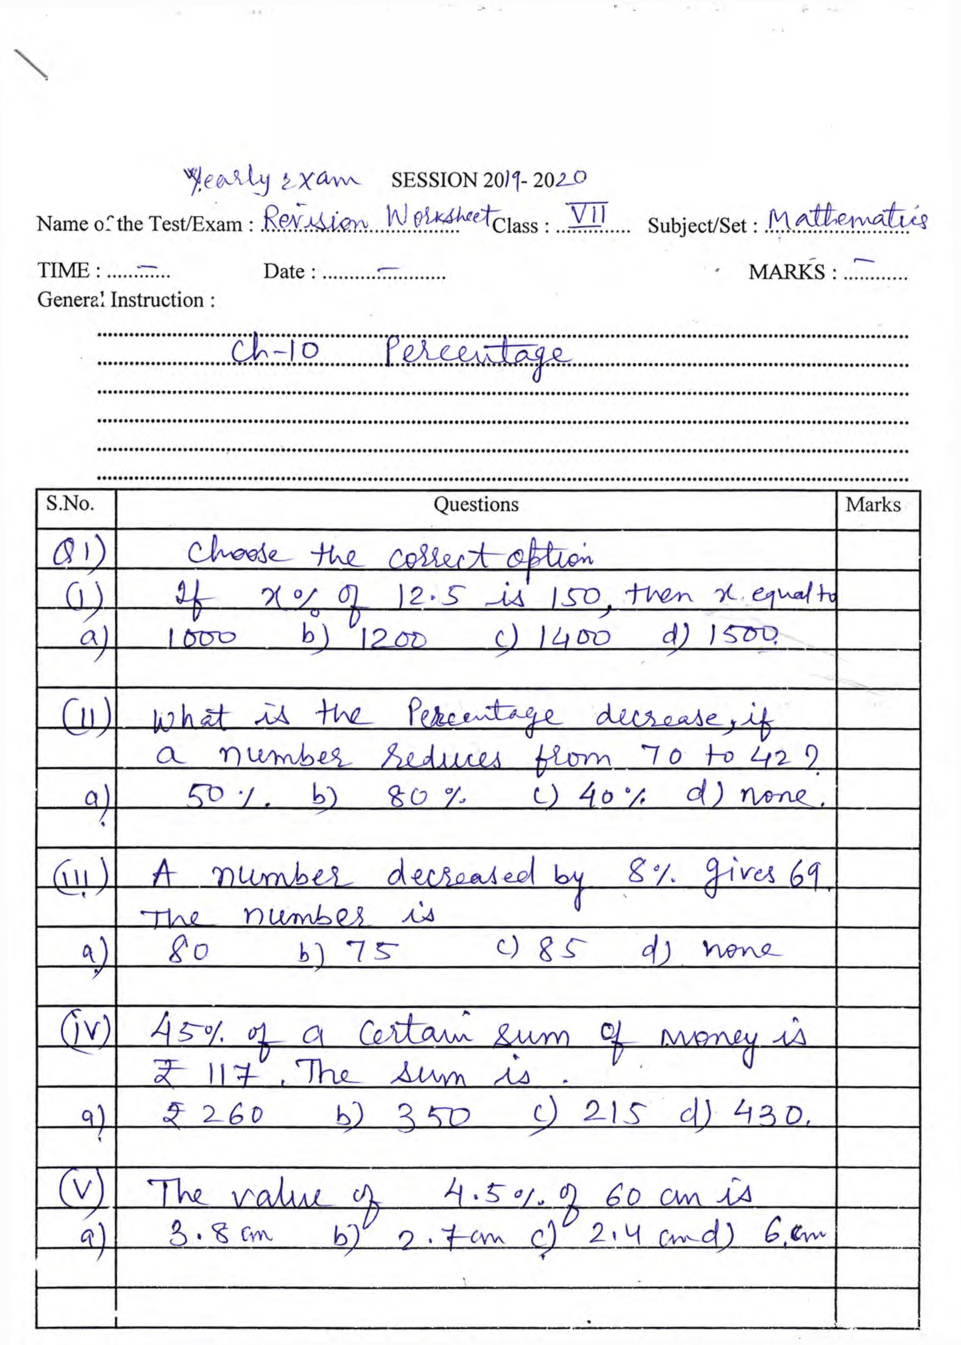 Yearly Exam SESSION 2019-2020
Name of the Test/Exam : Revision Worksheet Class : VII Subject/Set : Mathematics
TIME : ....–.... Date : ....–.... MARKS : ....–....
General Instruction :
Ch-10 Percentage
S.No. Questions Marks
Q1) Choose the correct option
(i) If x% of 12.5 is 150, then x equal to
a) 1000 b) 1200 c) 1400 d) 1500.
(ii) What is the Percentage decrease, if
a number reduces from 70 to 42?
a) 50%. b) 80%. c) 40%. d) none.
(iii) A number decreased by 8%. gives 69.
The number is
a) 80 b) 75 c) 85 d) none
(iv) 45%. of a certain sum of money is
₹ 117. The sum is .
a) ₹ 260 b) 350 c) 215 d) 430.
(v) The value of 4.5%. of 60 cm is
a) 3.8 cm b) 2.7 cm c) 2.4 cm d) 6.cm